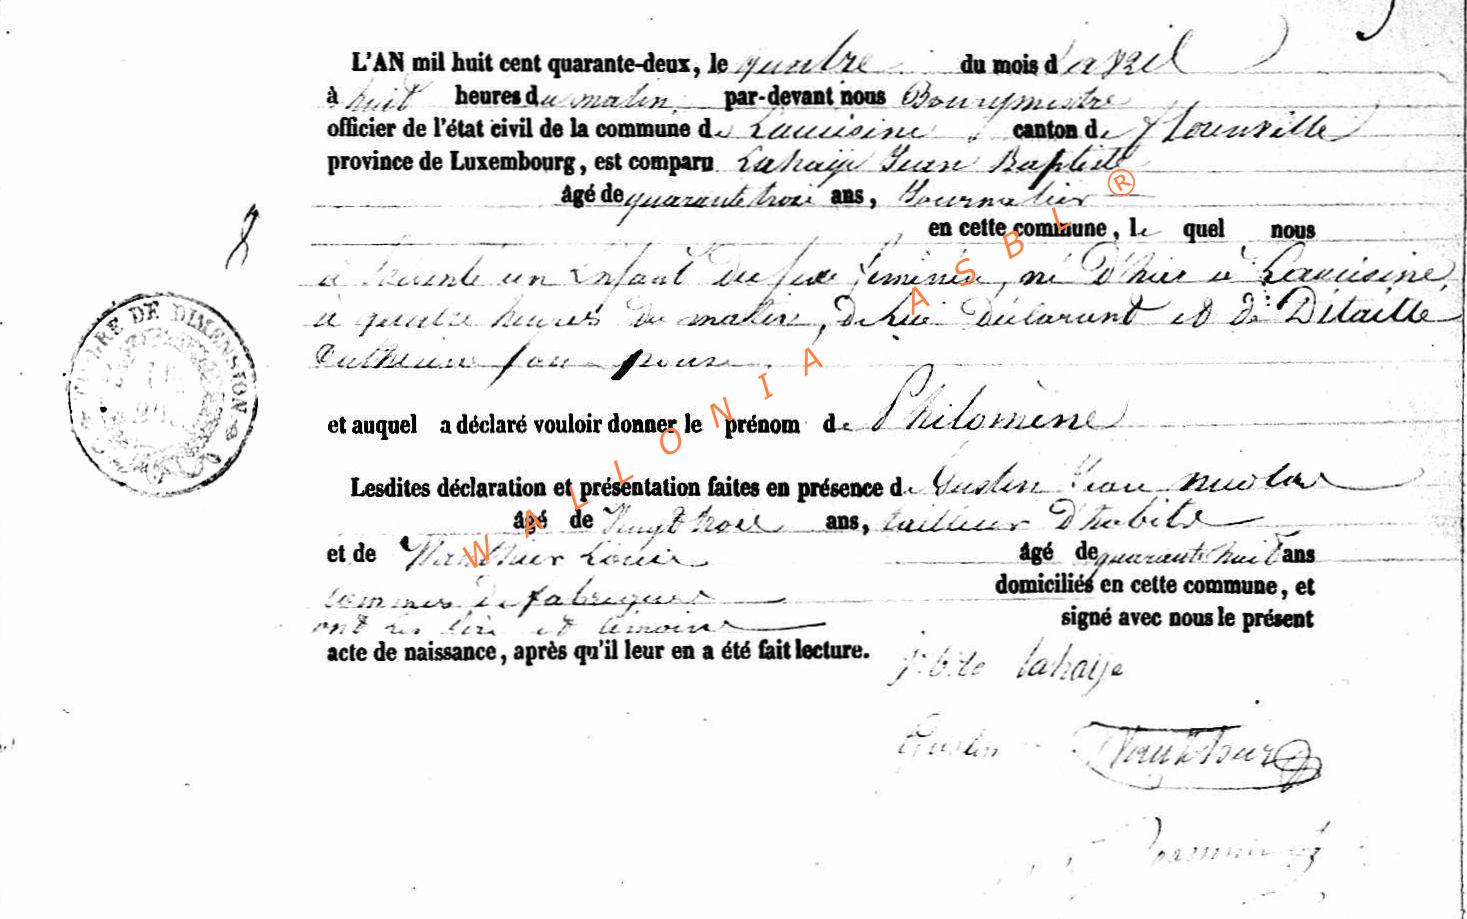 L'AN mil huit cent quarante-deux, le quatre du mois d'avril
à huit heures du matin, par-devant nous Bourgmestre
officier de l'état civil de la commune de Lacuisine, canton de Florenville
province de Luxembourg, est comparu Lahaije Jean Baptiste
âgé de quarante trois ans, Journalier
en cette commune, le quel nous
8
a présenté un Enfant du sexe féminin, né d'hier à Lacuisine,
à quatre heures du matin, de lui déclarant et de Détaille
Catherine son épouse.
TIMBRE DE DIMENSION
et auquel a déclaré vouloir donner le prénom de Philomène
Lesdites déclaration et présentation faites en présence de Gustin Jean Nicolas
âgé de Vingt trois ans, tailleur d'habits
et de Louis âgé de quarante huit ans
commis de fabriques domiciliés en cette commune, et
ont les père et témoins signé avec nous le présent
acte de naissance, après qu'il leur en a été fait lecture.
j. b. te lahaije
Gustin
WALLONIA ASBL ®